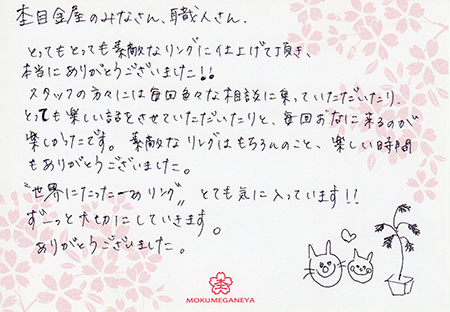 杢目金屋のみなさん、職人さん、
とってもとっても素敵なリングに仕上げて頂き、
本当にありがとうございました!!
スタッフの方々には毎回色々な相談に乗っていただいたり、
とっても楽しい話をさせていただいたりと、毎回お店に来るのが
楽しかったです。素敵なリングはもちろんのこと、楽しい時間
もありがとうございました。
"世界にたった一つのリング" とても気に入っています!!
ずーっと大切にしていきます。
ありがとうございました。
MOKUMEGANEYA